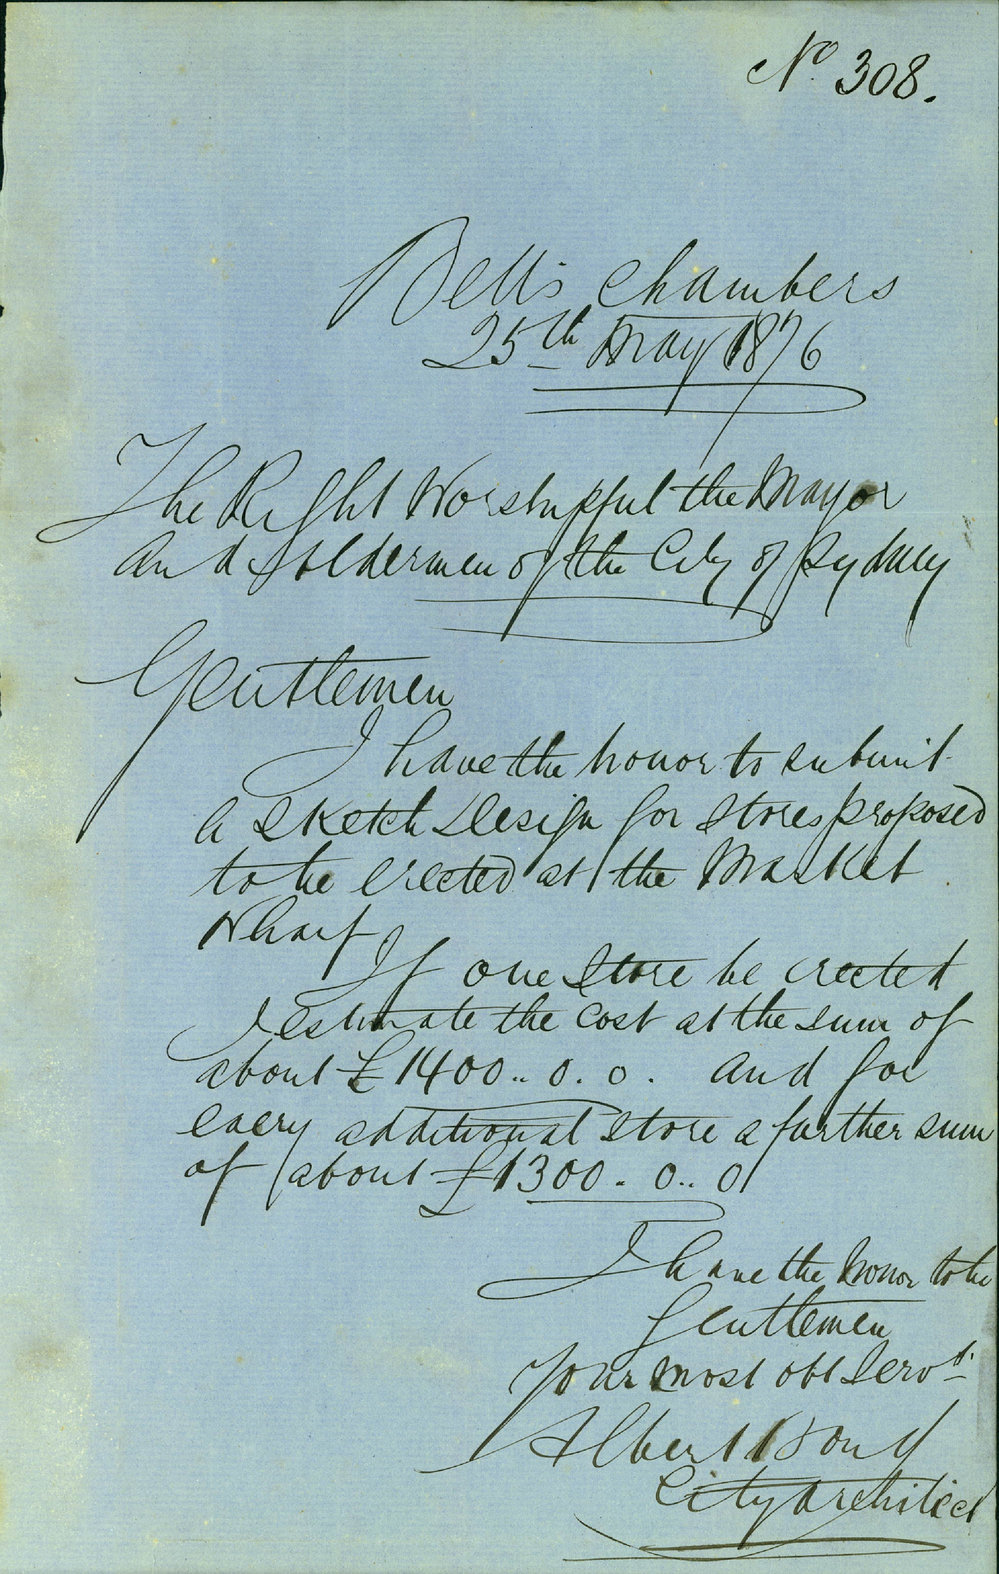 No. 308.
Bell's Chambers
25th May 1876
The Right Worshipful the Mayor
and Aldermen of the City of Sydney
Gentlemen
I have the honor to submit
a sketch Design for Stores proposed
to be erected at the Market
Wharf
If one Store be erected
I estimate the cost at the sum of
about £1400..0.0. and for
every additional Store a further sum
of about £1300.0..0
I have the honor to be
Gentlemen
Your most obt Servt.
Albert Bond
City Architect